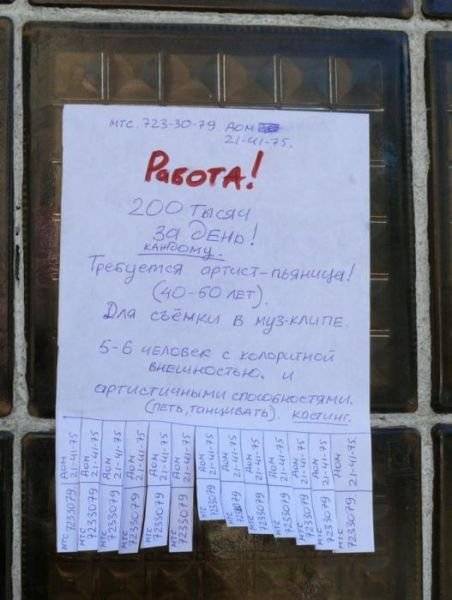 МТС. 723-30-79. ДОМ
21-41-75.
РАБОТА!
200 ТЫСЯЧ
ЗА ДЕНЬ!
КАЖДОМУ.
ТРЕБУЕТСЯ АРТИСТ-ПЬЯНИЦА!
(40-60 ЛЕТ).
ДЛЯ СЪЁМКИ В МУЗ-КЛИПЕ.
5-6 ЧЕЛОВЕК С КОЛОРИТНОЙ
ВНЕШНОСТЬЮ. И
АРТИСТИЧНЫМИ СПОСОБНОСТЯМИ.
(ПЕТЬ, ТАНЦИВАТЬ). КАСТИНГ.
МТС 7233079 ДОМ
21-41-75
МТС 7233079 ДОМ
21-41-75
МТС 7233079 ДОМ
21-41-75
МТС 7233079 ДОМ
21-41-75
МТС 7233079 ДОМ
21-41-75
МТС 7233079 ДОМ
21-41-75
МТС 7233079 ДОМ
21-41-75
МТС 7233079 ДОМ
21-41-75
МТС 7233079 ДОМ
21-41-75
МТС 7233079 ДОМ
21-41-75
МТС 7233079 ДОМ
21-41-75
МТС 7233079 ДОМ
21-41-75